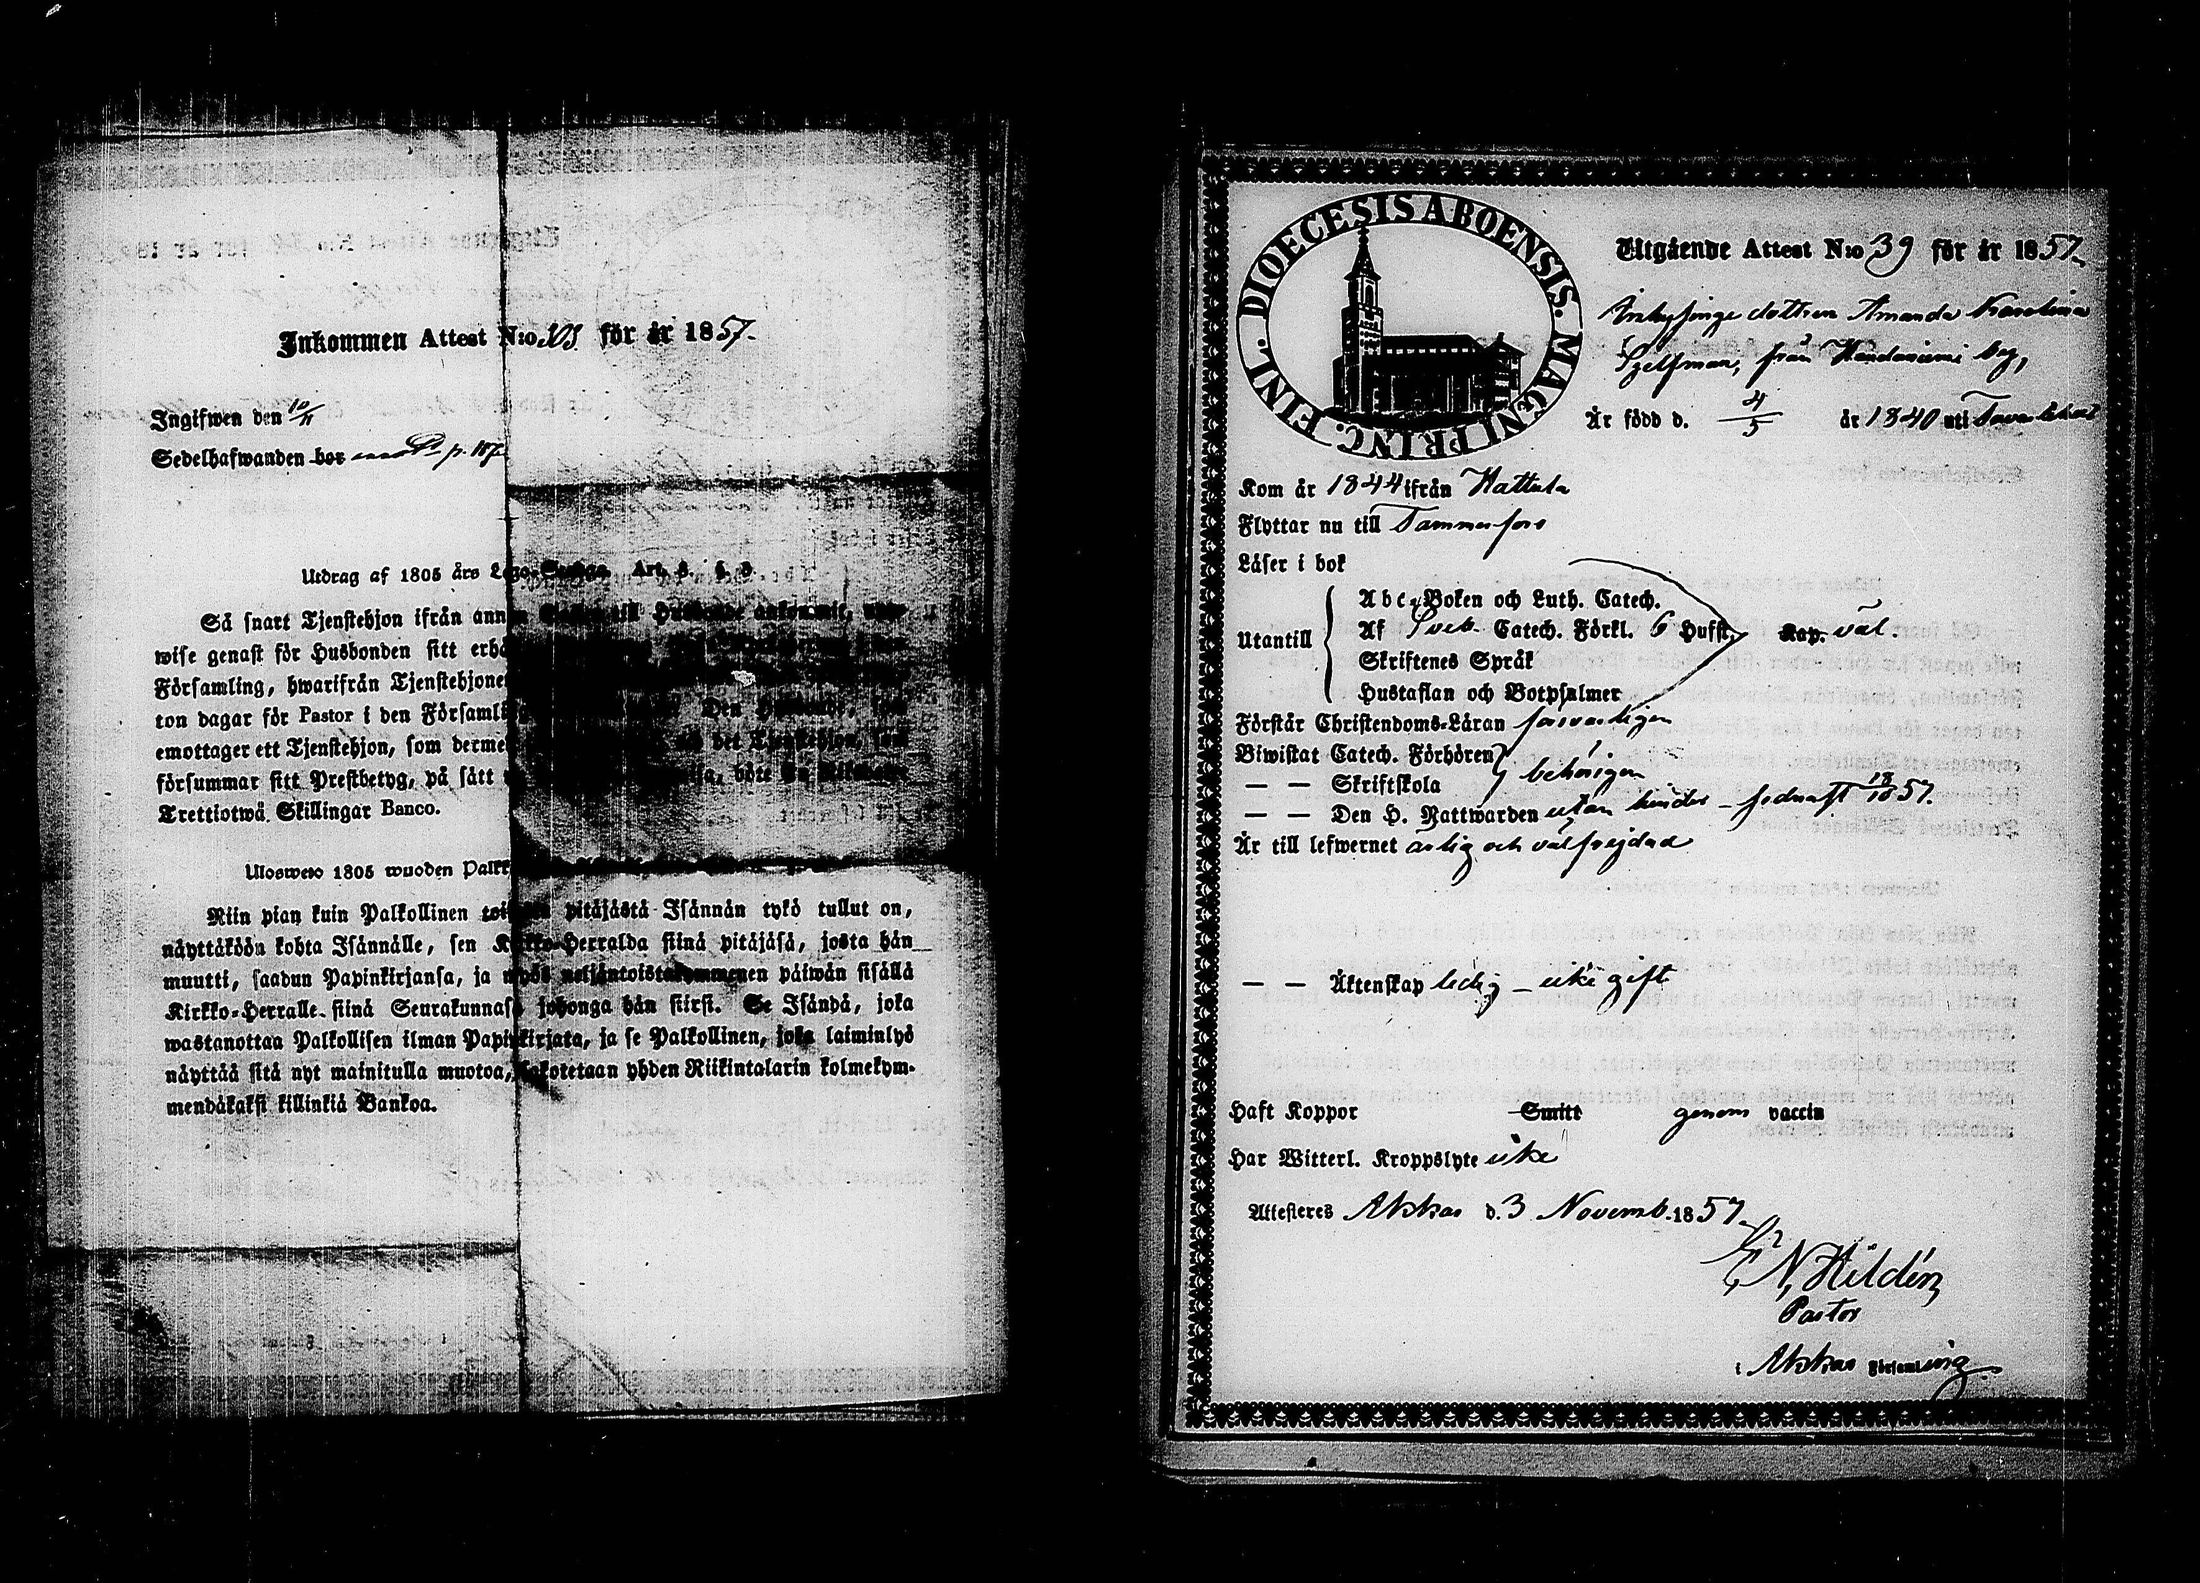 Inkommen Attest N:o för år 1857.
Ingifwen den 10/11
Sedelhafwanden bor p. 187
Utdrag af 1805 års Lego-Stadga. Art. 3. §. 3
Så snart Tjenstehjon ifrån annan till Husbonde ankommit,
wise genast för Husbonden sitt
Församling, hwarifrån Tjenstehjonet
ton dagar för Pastor i den Församling Den Husbonde, som
emottager ett Tjenstehjon, som det Tjenstehjon, som
försummar sitt Prestbetyg, på sätt böte En Riksdaler
Trettiotwå Skillingar Banco.
Ulosweto 1805 wuoden
Niin pian kuin Palkollinen toisesta pitäjästä Isännän tykö tullut on,
näyttäköön kohta Isännälle, sen Kirkko-Herralda siinä pitäjäsä, josta hän
muutti, saadun Papinkirjansa, ja myös neljäntoistakymmenen päiwän sisällä
Kirkko-Herralle siinä Seurakunnasa johonga hän siirsi. Se Isändä, joka
wastanottaa Palkollisen ilman Papinkirjata, ja se Palkollinen, joka laiminlyö
näyttää sitä nyt mainitulla muotoa, sakotetaan yhden Riikintalarin kolmekym-
mendäkaksi killinkiä Bankoa.
DIOECESIS ABOENSIS. MAGNI PRINC. FINL.
Utgående Attest N:o 39 för år 1857.
Inhysinge dottren Amanda Karolina
från bÿ,
Är född d. 4/5 år 1840 uti Tavastehus
Kom år 1844 ifrån Hattula
Flyttar nu till Tammerfors
Läser i bok
Utantill
Abc-Boken och Luth. Catech.
Af Sveb. Catech. Förkl. 6 Hufst. Kap. väl.
Skriftenes Språk
Hustaflan och Botpsalmer
Förstår Christendoms-Läran försvarligen
Biwistat Catech. Förhören
— — Skriftskola behörigen
— — Den H. Nattwarden utan hinder – sednast 18/10 57.
Är till lefwernet ärlig och välfrejdad
— — Äktenskap ledig – icke gift
Haft Koppor Smitt genom vaccin
Har Witterl. Kroppslyte icke
Attesteres Akkas d. 3 Novemb. 1857.
E N Hildén
Pastor
i Akkas Församling